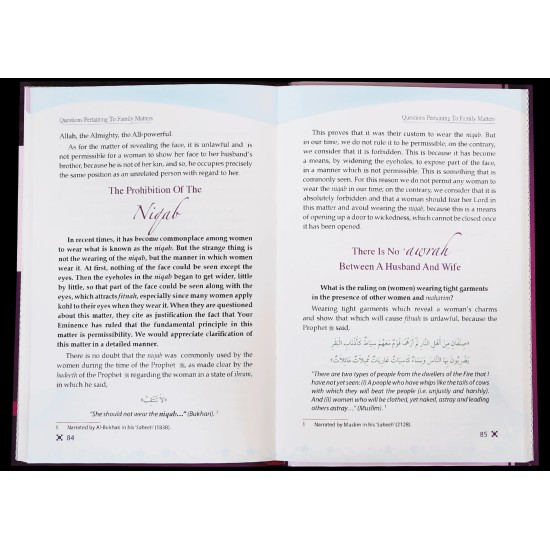 Questions Pertaining To Family Matters
Allah, the Almighty, the All-powerful.
As for the matter of revealing the face, it is unlawful and is
not permissible for a woman to show her face to her husband's
brother, because he is not of her kin, and so, he occupies precisely
the same position as an unrelated person with regard to her.
The Prohibition Of The
Niqab
In recent times, it has become commonplace among women
to wear what is known as the niqab. But the strange thing is
not the wearing of the niqab, but the manner in which women
wear it. At first, nothing of the face could be seen except the
eyes. Then the eyeholes in the niqab began to get wider, little
by little, so that part of the face could be seen along with the
eyes, which attracts fitnah, especially since many women apply
kohl to their eyes when they wear it. When they are questioned
about this matter, they cite as justification the fact that Your
Eminence has ruled that the fundamental principle in this
matter is permissibility. We would appreciate clarification of
this matter in a detailed manner.
There is no doubt that the niqab was commonly used by
women during the time of the Prophet ﷺ, as made clear by the
hadeeth of the Prophet ﷺ regarding the woman in a state of ihram,
in which he said,
«لَا تَنْتَقِبُ»
"She should not wear the niqab..." (Bukhari). 1
1 Narrated by Al-Bukhari in his 'Saheeh' (1838).
84
Questions Pertaining To Family Matters
This proves that it was their custom to wear the niqab. But
in our time, we do not rule it to be permissible; on the contrary,
we consider that it is forbidden. This is because it has become
a means, by widening the eyeholes, to expose part of the face,
in a manner which is not permissible. This is something that is
commonly seen. For this reason we do not permit any woman to
wear the niqab in our time; on the contrary, we consider that it is
absolutely forbidden and that a woman should fear her Lord in
this matter and avoid wearing the niqab, because this is a means
of opening up a door to wickedness, which cannot be closed once
it has been opened.
There Is No 'awrah
Between A Husband And Wife
What is the ruling on (women) wearing tight garments
in the presence of other women and maharim?
Wearing tight garments which reveal a woman's charms
and show that which will cause fitnah is unlawful, because the
Prophet ﷺ said,
«صِنْفَانِ مِنْ أَهْلِ النَّارِ لَمْ أَرَهُمَا قَوْمٌ مَعَهُمْ سِيَاطٌ كَأَذْنَابِ الْبَقَرِ
يَضْرِبُونَ بِهَا النَّاسَ وَنِسَاءٌ كَاسِيَاتٌ عَارِيَاتٌ مُمِيلَاتٌ مَائِلَاتٌ»
"There are two types of people from the dwellers of the Fire that I
have not yet seen: (i) A people who have whips like the tails of cows
with which they will beat the people (i.e. unjustly and harshly).
And (ii) women who will be clothed, yet naked, astray and leading
others astray..." (Muslim). 1
1 Narrated by Muslim in his 'Saheeh' (2128).
85